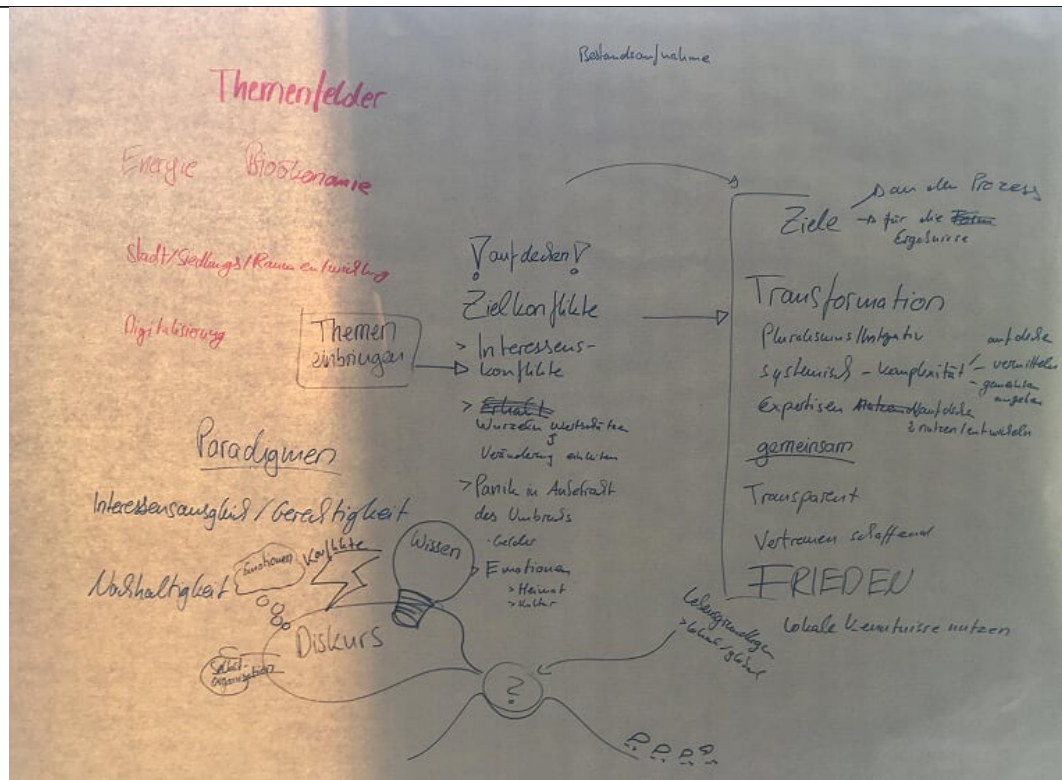 Bestandsaufnahme
Themenfelder
Energie Bioökonomie
Stadt/Siedlungs/Raumentwicklung
Digitalisierung
Themen
einbringen
Paradigmen
Interessensausgleich/Gerechtigkeit
Nachhaltigkeit
Emotionen
Konflikte
Wissen
Diskurs
Selbst-
organisation
!aufdecken!
Zielkonflikte
> Interessens-
konflikte
> Erhalt
Wurzeln wertschätzen
Veränderung einleiten
> Panik in Anbetracht
des Umbruchs
- Gelder
> Emotionen
> Heimat
> Kultur
?
> lokal/global
Ziele
an den Prozess
für die
Ergebnisse
Transformation
Pluralismus
aufdecken
systemisch - Komplexität
- vermitteln
- gemeinsam
angehen
Expertisen
aufdecken
& nutzen/entwickeln
gemeinsam
Transparent
Vertrauen schaffend
FRIEDEN
Lokale Kenntnisse nutzen